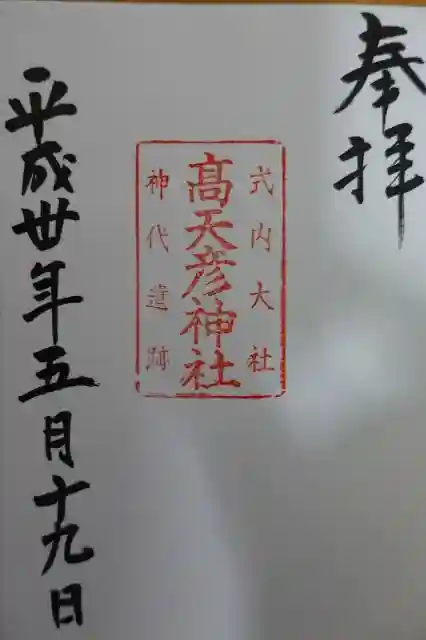 奉拝
式内大社
髙天彦神社
神代遺跡
平成丗年五月十九日